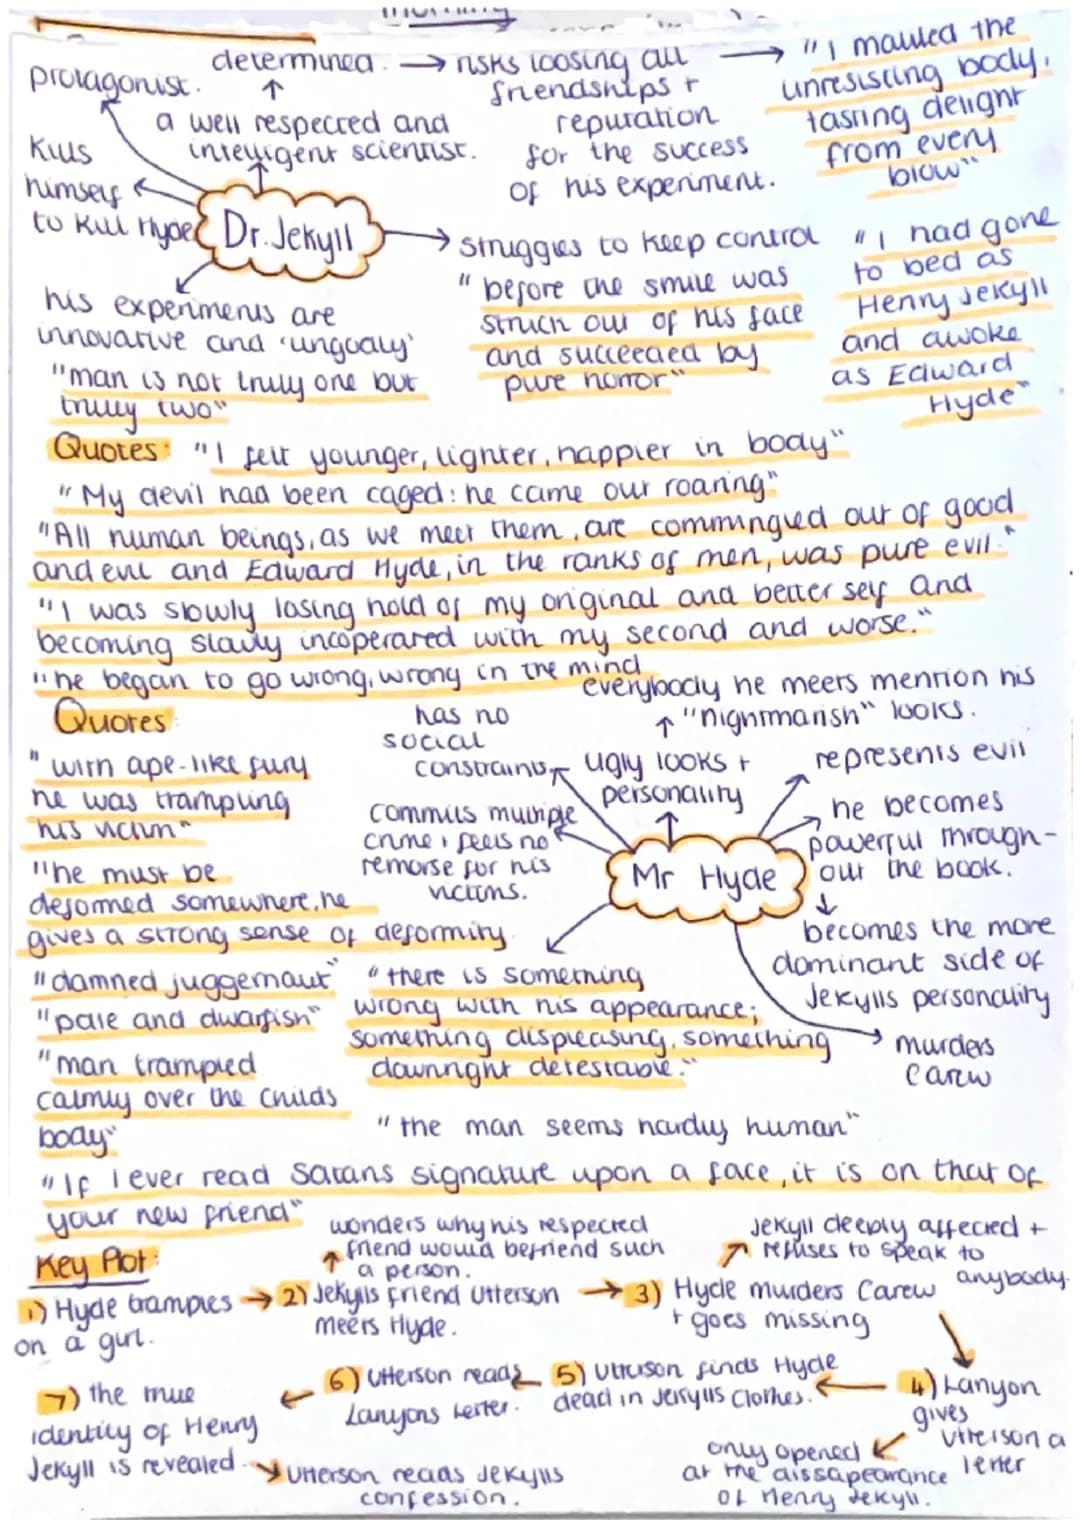 determined. → risks loosing all friendships + reputation for the success of his experiment.
→ "I mauled the unresisting body, tasting delight from every blow"
protagonist.
a well respected and
intelligent scientist.
Kills
himself
to kill Hyde
Dr. Jekyll
struggles to keep control
"before the smile was
struck out of his face
and succeeded by
pure horror"
"I had gone
to bed as
Henry Jekyll
and awoke
as Edward
Hyde"
his experiments are
innovative and 'ungodly'
"man is not truly one but
truly two"
Quotes: "I felt younger, lighter, happier in body"
"My devil had been caged: he came out roaring"
"All human beings, as we meet them, are commingled out of good
and evil and Edward Hyde, in the ranks of men, was pure evil."
"I was slowly losing hold of my original and better self and
becoming slowly incoperated with my second and worse."
"he began to go wrong, wrong in the mind
Quotes:
"with ape-like fury
he was trampling
his victim"
"he must be
deformed somewhere, he
gives a strong sense of deformity
"damned juggernaut"
"pale and dwarfish"
"man trampled
calmly over the childs
body"
has no
social
constraints
everybody he meets mention his
"nightmarish" looks.
ugly looks +
personality
represents evil
commits multiple
crime, feels no
remorse for his
victims.
Mr Hyde
he becomes
powerful through-
out the book.
becomes the more
dominant side of
Jekylls personality
murders
Carew
"there is something
wrong with his appearance;
something displeasing, something
downright detestable."
"the man seems hardly human"
"If I ever read Satans signature upon a face, it is on that of
your new friend"
Key Plot:
1) Hyde tramples
on a girl.
→ 2) Jekylls friend Utterson
meets Hyde.
wonders why his respected
friend would befriend such
a person.
→ 3) Hyde murders Carew
+ goes missing
Jekyll deeply affected +
refuses to speak to
anybody.
4) Lanyon
gives
Utterson a
letter
only opened
at the dissapearance
of Henry Jekyll.
5) Utterson finds Hyde
dead in Jekylls clothes.
6) Utterson reads
Lanyons letter.
7) the true
identity of Henry
Jekyll is revealed.
Utterson reads Jekylls
confession.